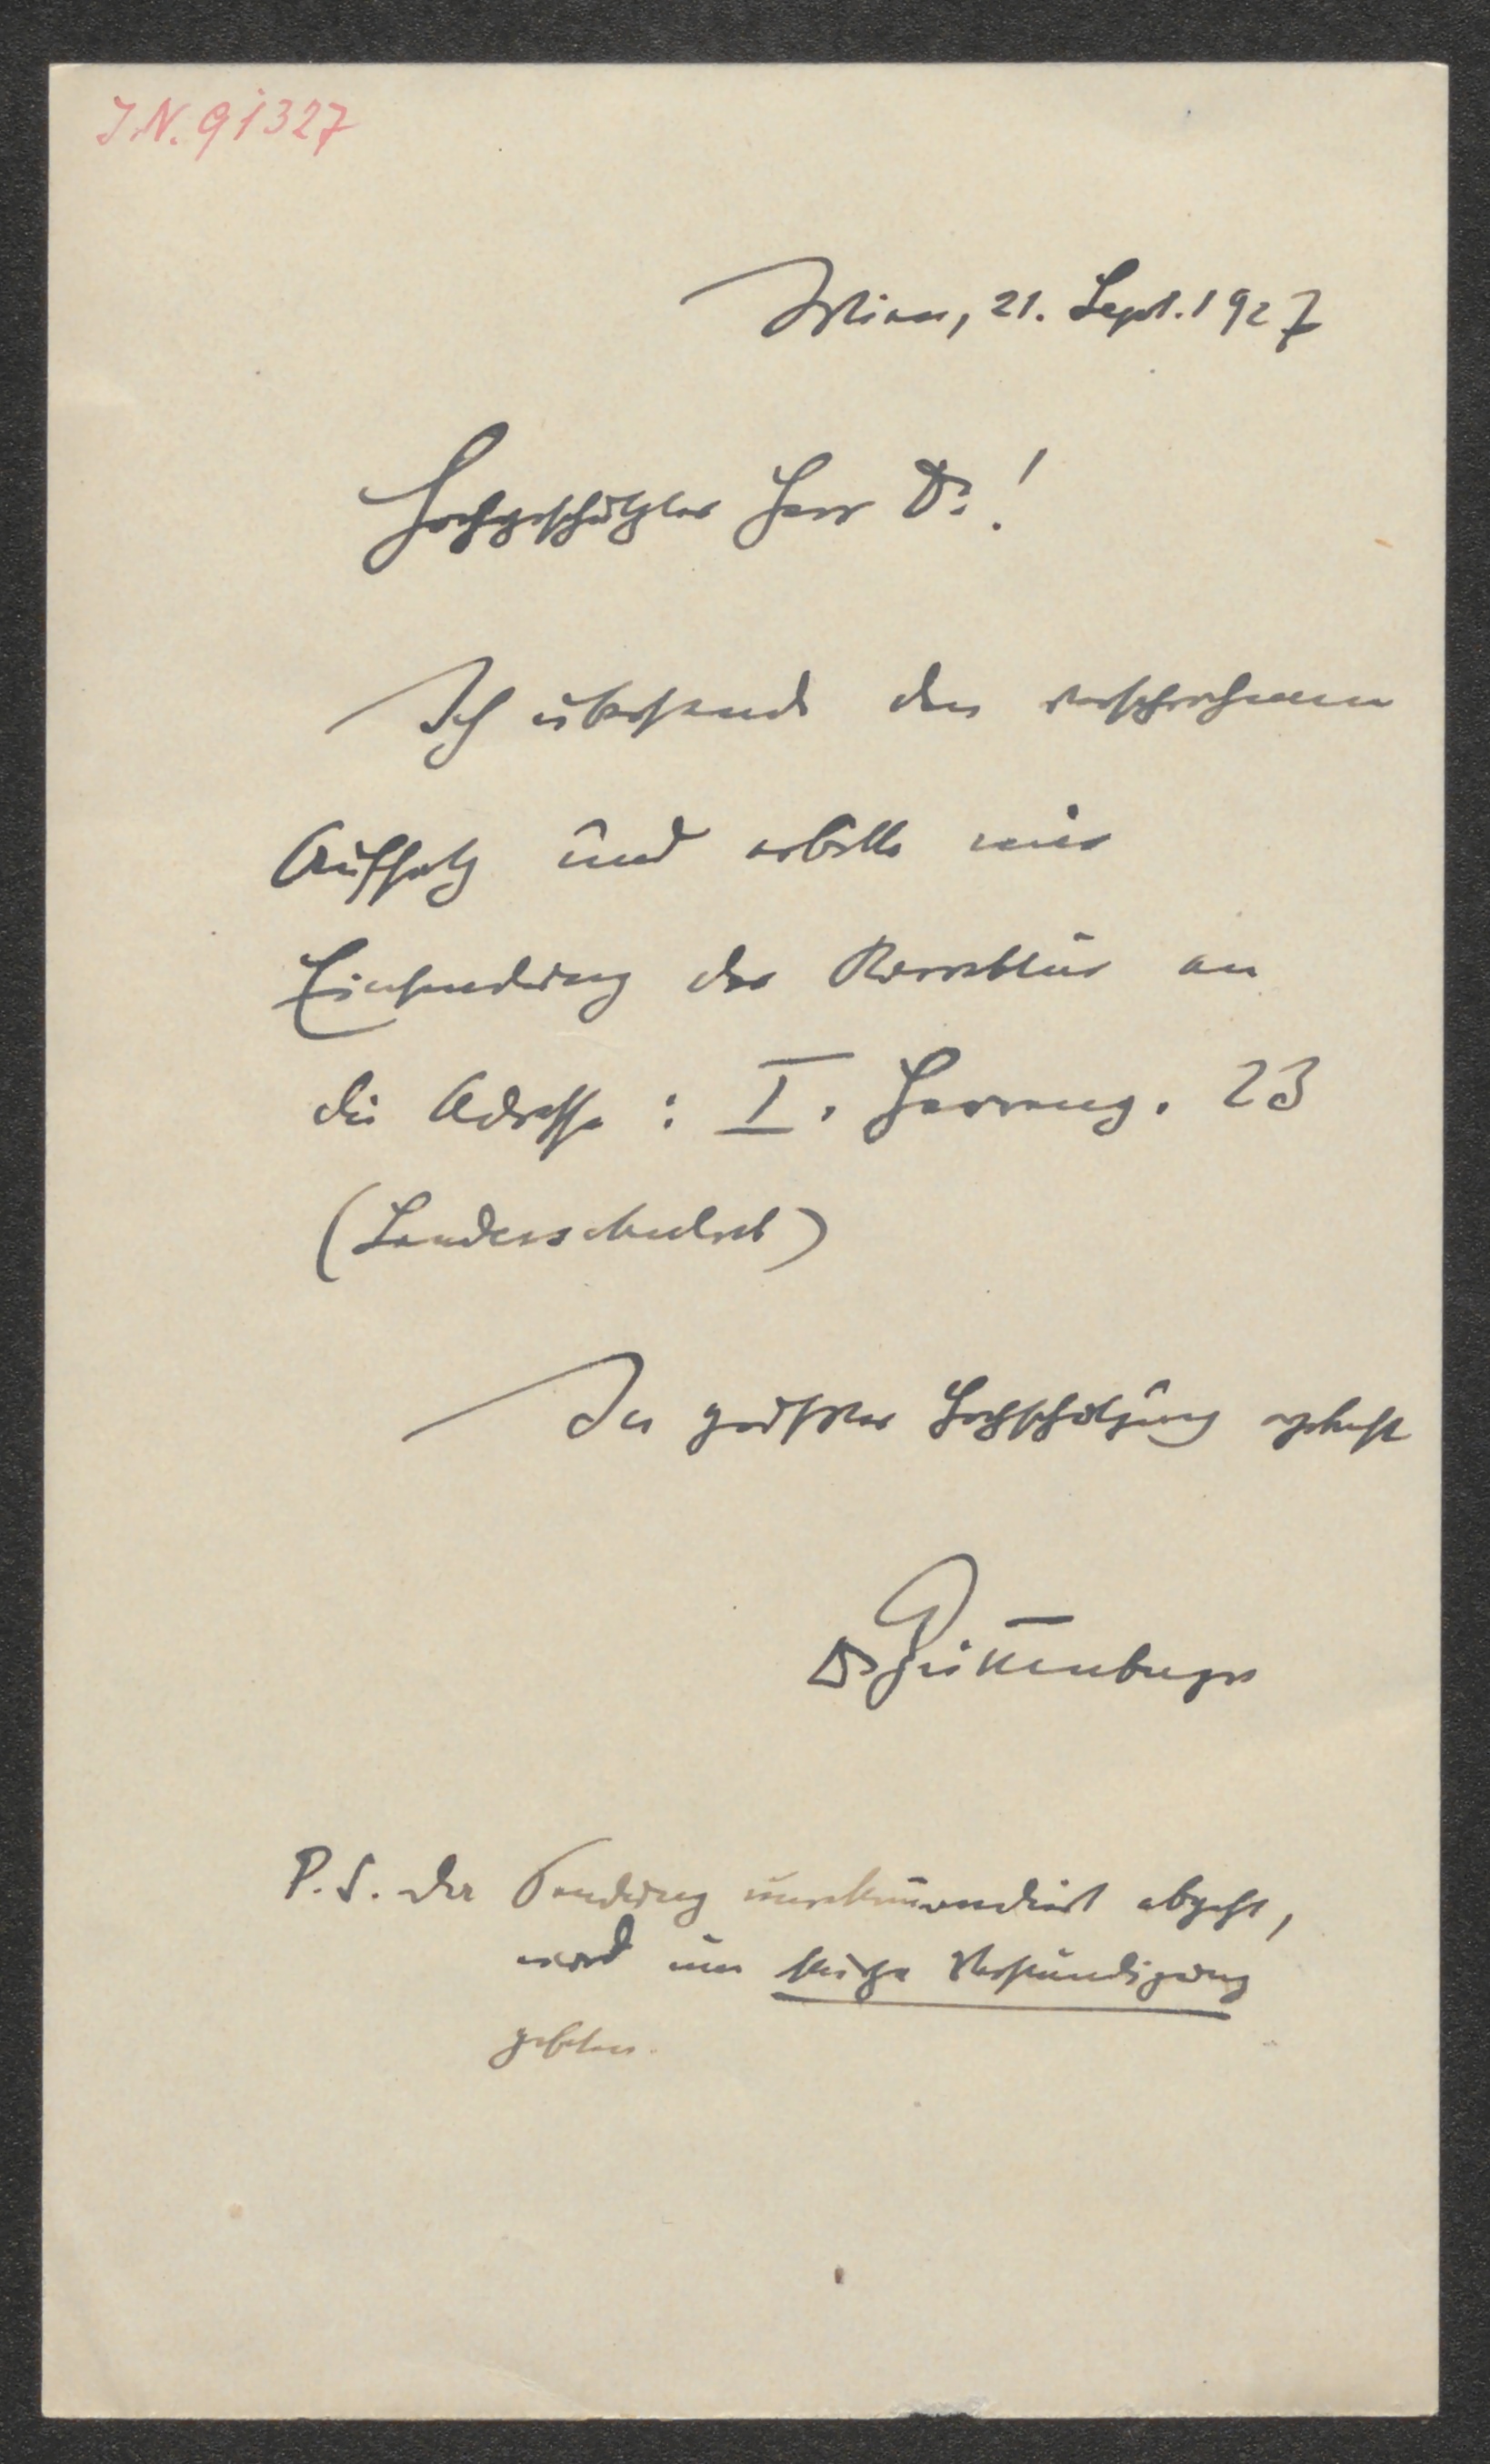 I.N. 91327
Wien, 21. Sept. 1927
Hochgeschätzter Herr Dr.!
Ich übersende den versprochenen
Aufsatz und erbitte mir
Einsendung der Korrektur an
die Adresse: I. Herreng. 23
(Landesschulrat)
In größter Hochschätzung ergebenst
Dr Güttenberger
P.S. Da Sendung unrekommandiert abgeht,
wird um kurze Verständigung
gebeten.